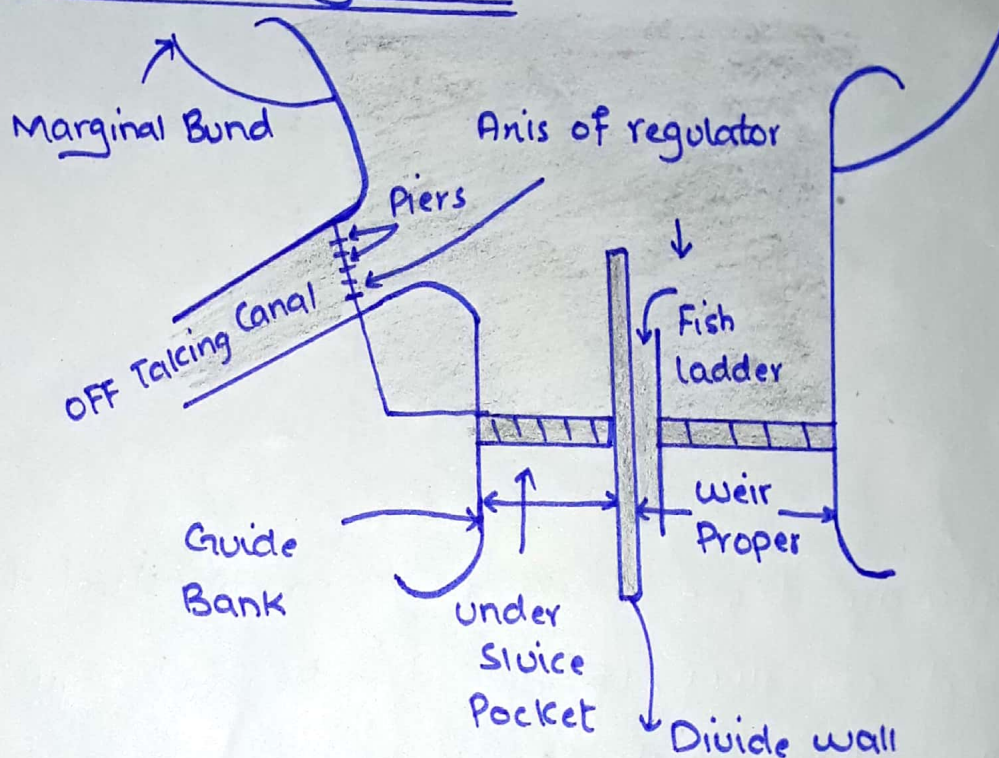 Marginal Bund
Anis of regulator
Piers
OFF Taking Canal
Fish
ladder
Weir
Proper
Guide
Bank
under
Sluice
Pocket
Divide wall